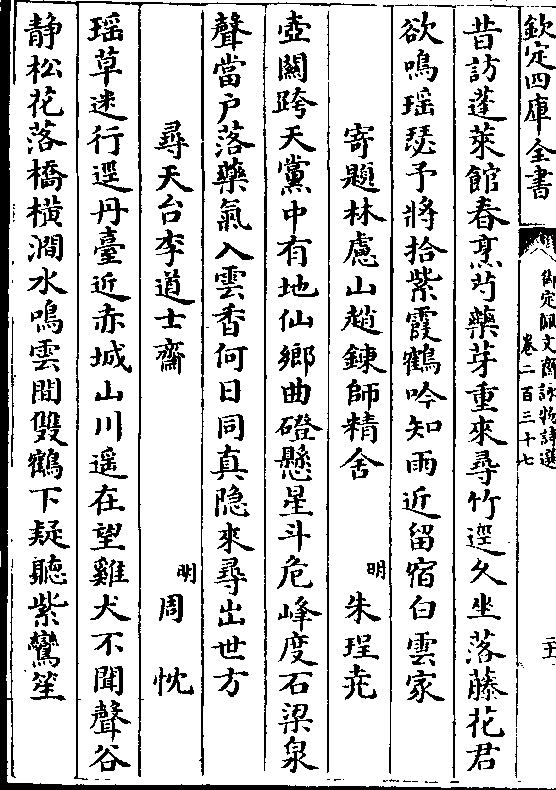 欽定四庫全書
御定佩文齋詠物詩選
卷二百三十七
昔訪蓬萊館春烹芍藥芽重來尋竹逕久坐落藤花君
欲鳴瑶瑟予將拾紫霞鶴吟知雨近留宿白雲家
寄題林慮山趙鍊師精舍
明
朱珵尭
壺關跨天黨中有地仙鄉曲磴懸星斗危峰度石梁泉
聲當户落藥氣入雲香何日同真隐來尋出世方
尋天台李道士齋
明
周忱
瑶草迷行逕丹臺近赤城山川遥在望雞犬不聞聲谷
静松花落橋橫澗水鳴雲間雙鶴下疑聽紫鸞笙